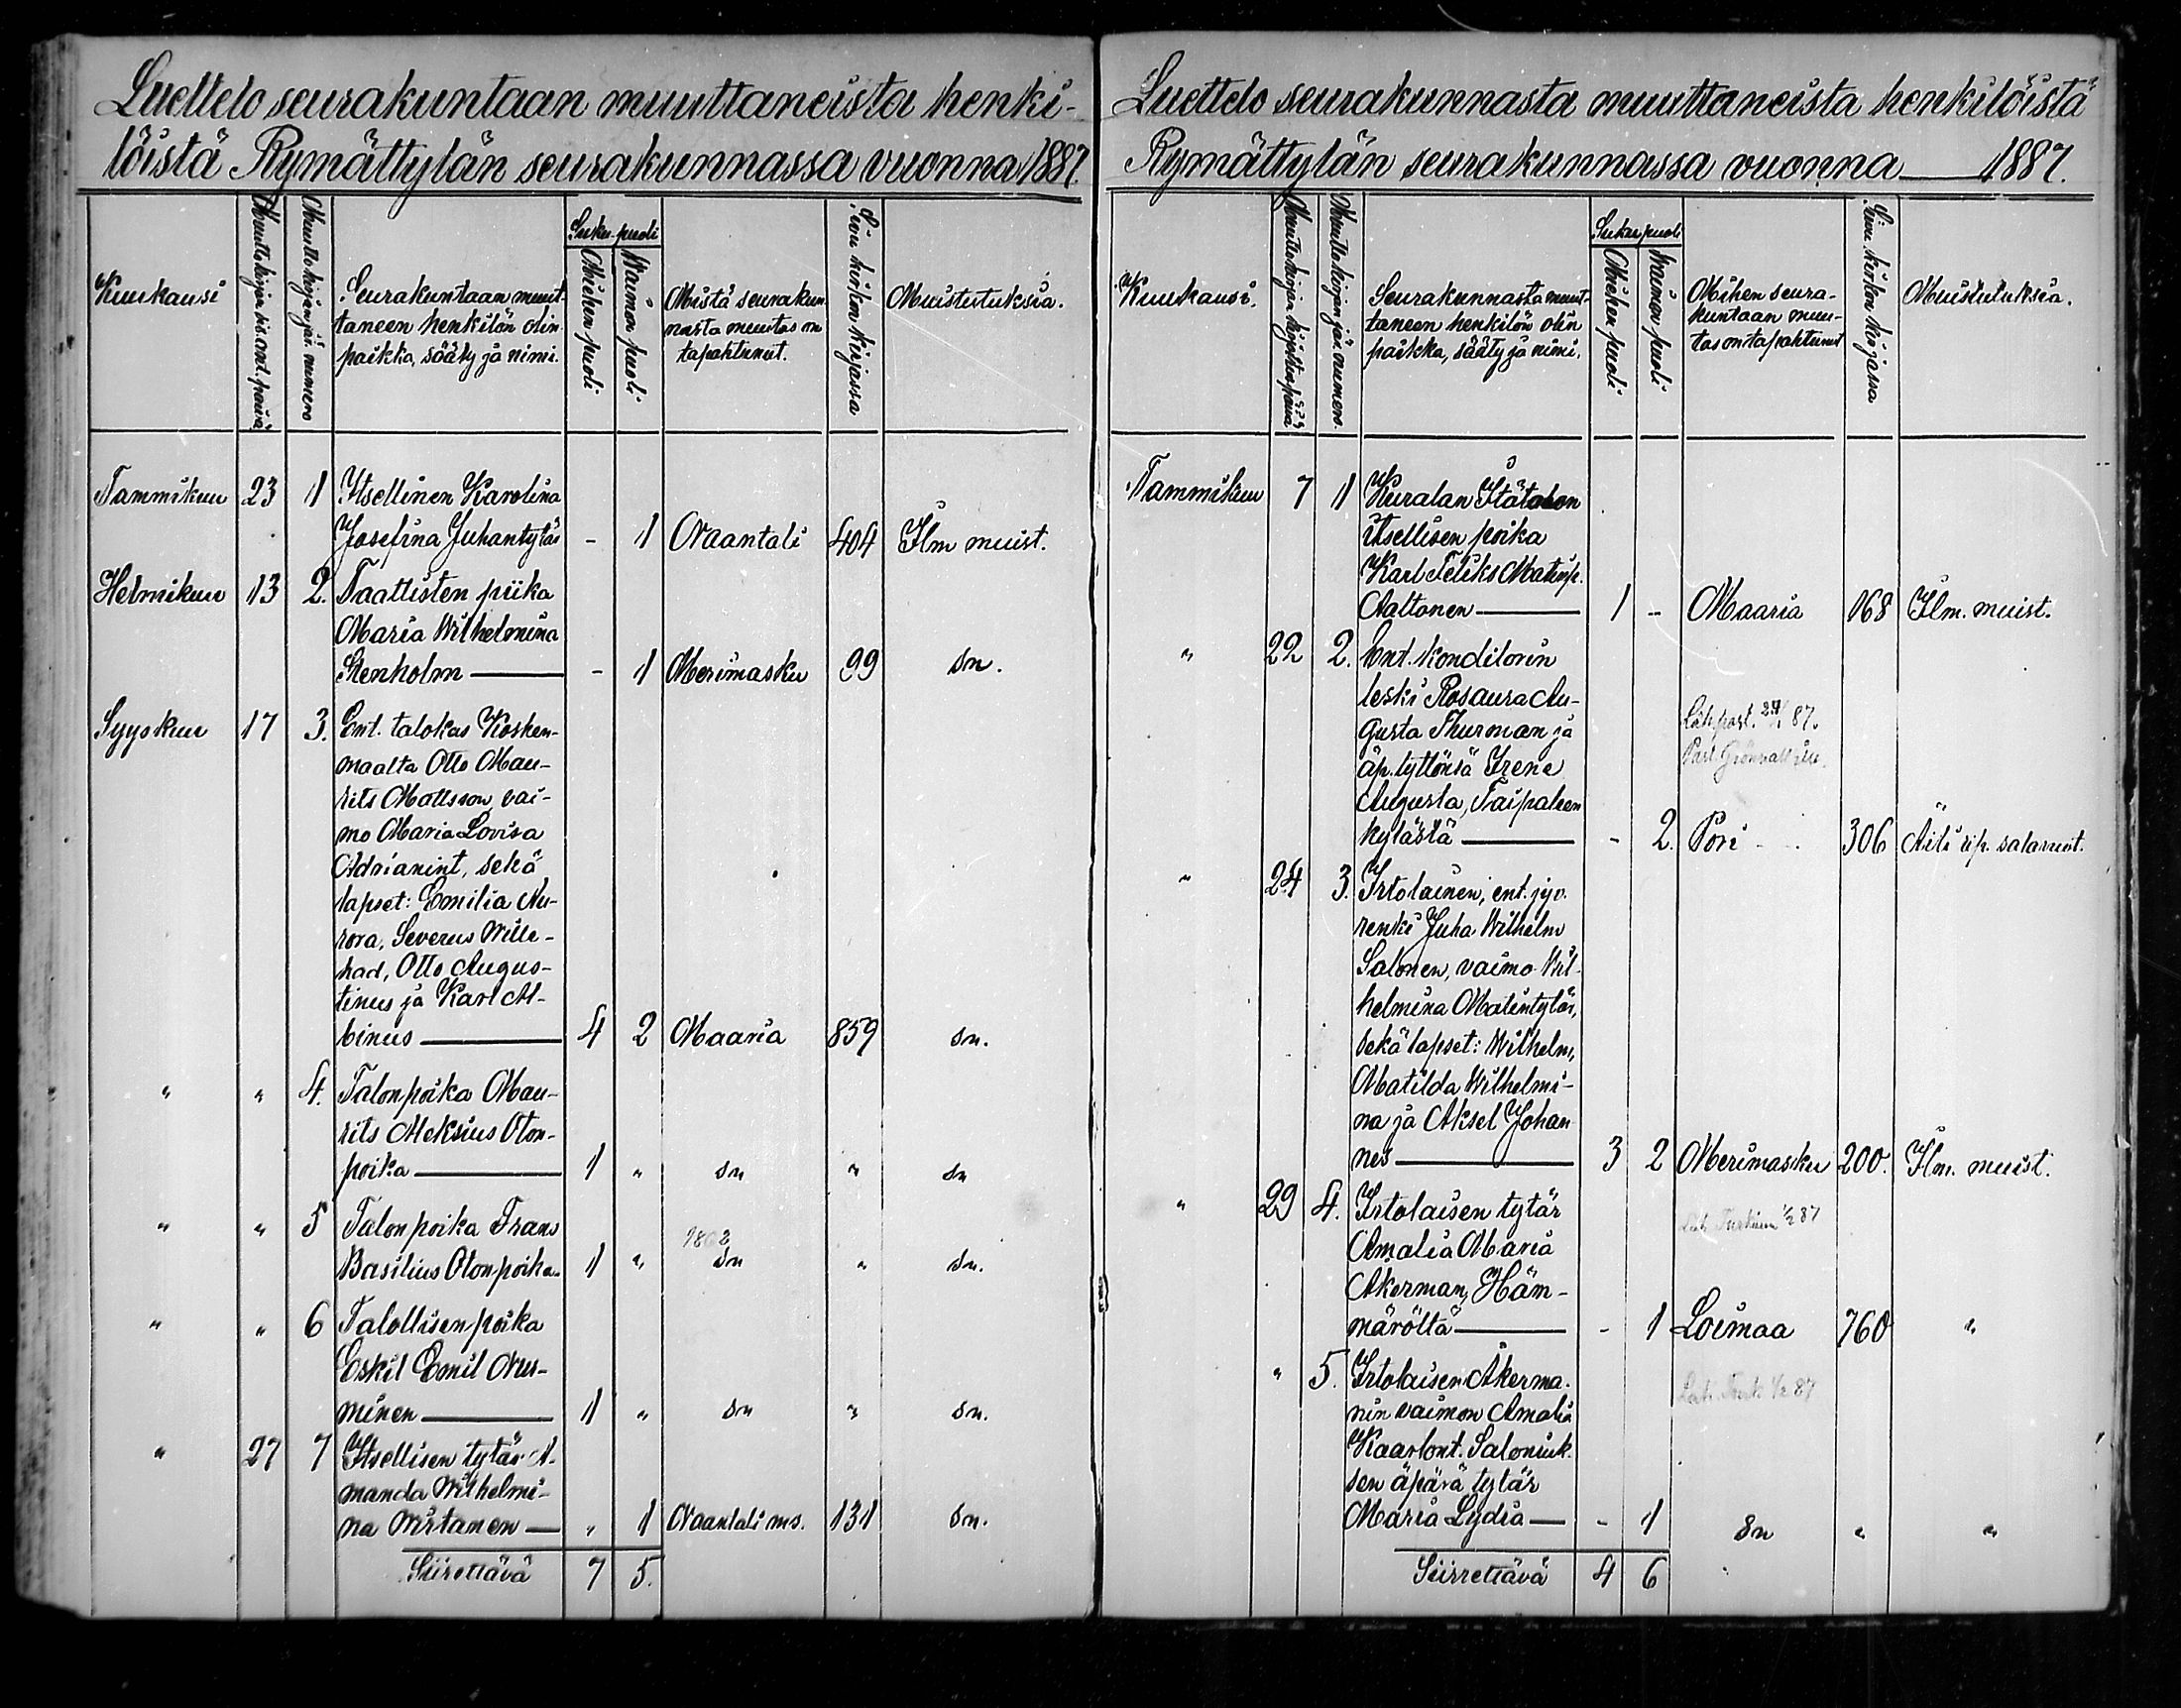 Luettelo seurakuntaan muuttaneista henki-
löistä Rymättylän seurakunnassa vuonna 1887.
Kuukausi
Muuttokirjan jär. numero
Seurakuntaan muut-
taneen henkilön olin
paikka, sääty ja nimi.
Suku-puoli
Miehen puoli
Waimon puoli
Mistä seurakun-
nasta muutos on
tapahtunut.
Sivu kirkon kirjassa
Muistutuksia.
Tammikuu 23 1 Itsellinen Karolina
Josefina Juhantytär - 1 Naantali 404 Ilm muist.
Helmikuu 13 2. Taattisten piika
Maria Wilhelmina
Stenholm - 1 Merimasku 99 sn.
Syyskuu 17 3. Ent. talokas Kosken-
maalta Otto Mau-
rits Mattsson, vai-
mo Maria Lovisa
Adrianint, sekä
lapset: Emilia Au-
rora, Severus Wille-
had, Otto Augus-
tinus ja Karl Al-
binus 4 2 Maaria 859 sn.
" " 4. Talonpoika Mau-
rits Aleksius Oton-
poika 1 " sn " sn
" " 5 Talonpoika Frans
Basilius Otonpoika 1 " sn " sn.
" " 6 Talollisenpoika
Eskil Emil Nur-
minen 1 " sn " sn.
" 27 7 Itsellisen tytär A-
manda Wilhelmi-
na Wirtanen " 1 Naantali ms. 131 sn.
Siirettävä 7 5.
Luettelo seurakunnasta muuttaneista henkilöistä
Rymättylän seurakunnassa vuonna 1887.
Kuukausi.
Muuttokirjan jär. numero.
Seurakunnasta muut-
taneen henkilön olin
paikka, sääty ja nimi.
Sukupuoli
Miehen puoli
Waimon puoli
Mihen seura-
kuntaan muu-
tos on tapahtunut
Sivu kirkon kirjassa
Muistutuksia.
Tammikuu 7 1 Kuralan Itätalon
itsellisen poika
Karl Feliks Matinp.
Aaltonen 1 - Maaria 168 Ilm. muist.
" 22 2. Ent. konditorin
leski Rosaura Au-
gusta Thurman ja
äp. tyttönsä Irene
Augusta, Taipaleen
kylästä - 2. Pori 306 Äiti rip. salavuot.
" 24 3. Irtolainen, ent. jyv.
renki Juha Wilhelm
Salonen, vaimo Wil-
helmina Matintytär,
sekä lapset: Wilhelm,
Matilda Wilhelmi-
na ja Aksel Johan
nes 3 2 Merimasku 200. Ilm. muist.
" 29 4. Irtolaisen tytär
Amalia Maria
Åkerman, Häm-
märöltä - 1 Loimaa 760 "
" 5. Irtolaisen Åkerma-
nin vaimon Amalia
Kaarlont. Saloniuk-
sen äpärä tytär
Maria Lydia - 1 sn " "
Siirrettävä 4 6